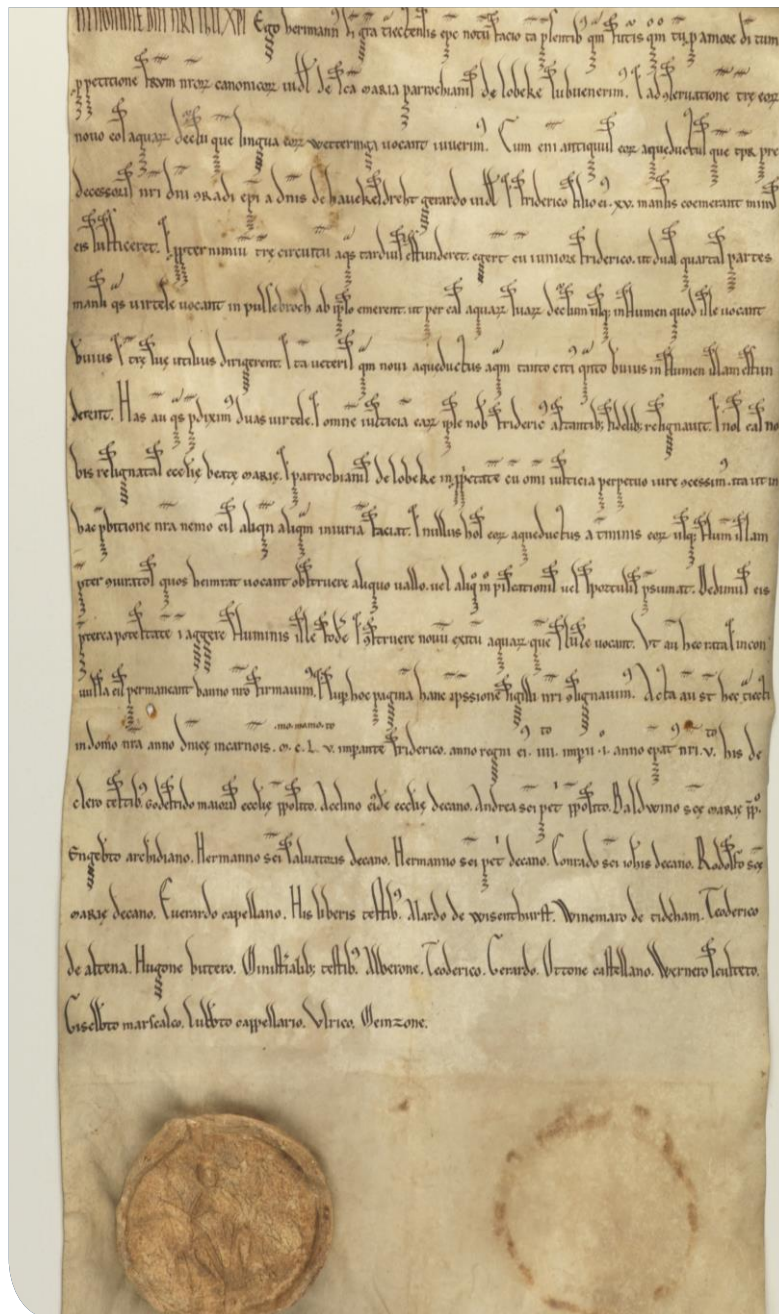 IN NOMINE DNI NRI IHU XPI Ego hermann' di gra traiectensis epc notu facio ta psentib' qm futis qm tu p amore di tum
p petitione frum nror canonicor uidl' de sca maria parrochianis de lobeke subuenerim'. et ad oseruatione tre eor
nouo eos aquar decsu que lingua eor wetteringa uocant iuuerim'. Cum eni antiquus eor aqueductus que tpr pre
decessoris nri dni oradi epi a dnis de haueksdreht gerardo uidl' et friderico filio ei'. xv. mansis coemerant min'
eis sufficeret. et ppter nimiu tre circuitu aqs tardius effunderet. egert eu iuniore friderico. ut duas quartas partes
mansi qs uirtele uocant in pullebroch ab ipso emerent. ut per eas aquar suar decsum usq; in flumen quod isle uocant
huius et tre sue utilius dirigerent. et ita ueteris qm noui aqueductus aqm tanto citi' qnto huius in flumen islam effun
derent. Has au qs pdixim' duas uirtele. et omne iusticia ear ipse nob' frideric' astantib; fidelib; resignauit. et nos eas no
bis resignatas ecclie beate marie. et parrochianis de lobeke in ppetate cu omi iusticia perpetuo iure ocessim'. ita ut in
hac pbitione nra nemo eis aliqn aliqm iniuria faciat. et nullus hos eor aqueductus a tminis eor usq; flum islam
pter ouratos quos heimrat uocant obstruere aliquo uallo. uel aliq in piscationis uel sportulis psumat. Dedimus eis
preterea potestate i aggere fluminis isle fode et ostruere nouu exitu aquar que sluse uocant. Vt au hec rata et incon
uulsa eis permaneant banno nro firmauim'. et sup hoc pagina hanc ipssione sigilli nri osignauim'. Acta au st hec tiecti
in domo nra anno dnice incarnois. m. c. L. v. impante friderico. anno regni ei'. iiii. impii. i. anno epat' nri. v. his de
clero testib' godefrido maioris ecclie pposito. Azelino eide ecclie decano. Andrea sci pet' pposito. Baldwino sce marie pp.
Engelbto archidiano. Hermanno sci saluatoris decano. Hermanno sci pet' decano. Conrado sci iohis decano. Rodolfo sce
marie decano. Euerardo capellano. His liberis testib'. Alardo de wisenthurst. Winemaro de tideham. Teoderico
de altena. Hugone buttero. Ministialib; testib'. Alberone. Teoderico. Gerardo. Ottone castellano. Wernero sculteto.
Giselbto marscalco. Lubbto cappellario. Vlrico. Meinzone.